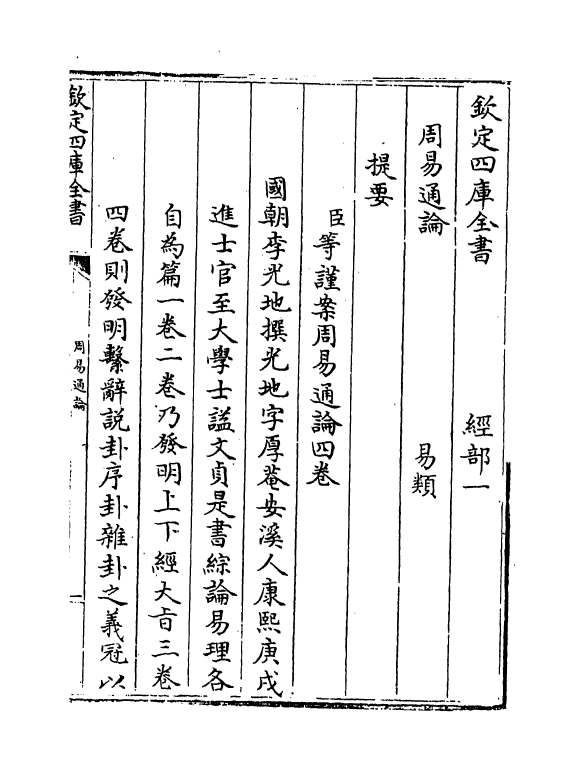 欽定四庫全書 經部一
周易通論 易類
提要
臣等謹案周易通論四卷
國朝李光地撰光地字厚菴安溪人康熙庚戌
進士官至大學士諡文貞是書綜論易理各
自為篇一卷二卷乃發明上下經大旨三卷
四卷則發明繫辭說卦序卦雜卦之義冠以
欽定四庫全書
周易通論
一